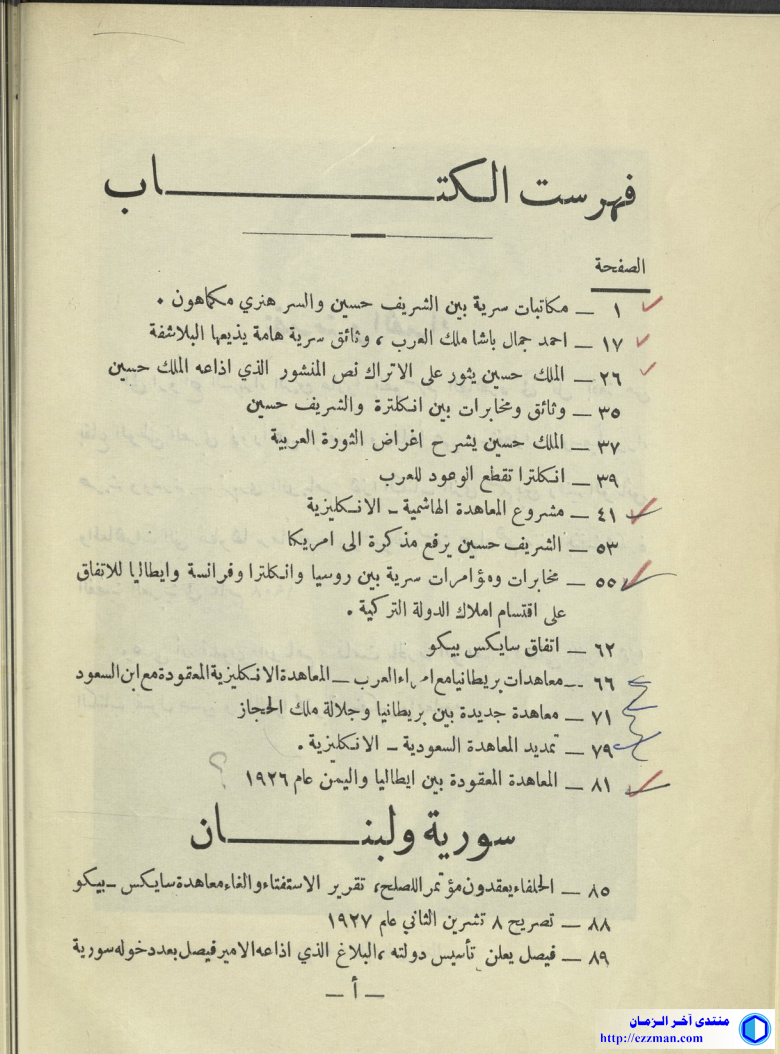 فهرست الكتاب
الصفحة
١ — مكاتبات سرية بين الشريف حسين والسر هنري مكماهون .
١٧ — احمد جمال باشا ملك العرب ، وثائق سرية هامة يذيعها البلاشفة
٢٦ — الملك حسين يثور على الاتراك نص المنشور الذي اذاعه الملك حسين
٣٥ — وثائق ومخابرات بين انكلترة والشريف حسين
٣٧ — الملك حسين يشرح اغراض الثورة العربية
٣٩ — انكلترا تقطع الوعود للعرب
٤١ — مشروع المعاهدة الهاشمية – الانكليزية
٥٣ — الشريف حسين يرفع مذكرة الى امريكا
٥٥ — مخابرات ومؤامرات سرية بين روسيا وانكلترا وفرانسة وايطاليا للاتفاق
على اقتسام املاك الدولة التركية .
٦٢ — اتفاق سايكس بيكو
٦٦ — معاهدات بريطانيا مع امراء العرب — المعاهدة الانكليزية المعقودة مع ابن السعود
٧١ — معاهدة جديدة بين بريطانيا وجلالة ملك الحجاز
٧٩ — تمديد المعاهدة السعودية – الانكليزية .
٨١ — المعاهدة المعقودة بين ايطاليا واليمن عام ١٩٢٦
؟
سورية ولبنان
٨٥ — الحلفاء يعقدون مؤتمر الصلح، تقرير الاستفتاء والغاء معاهدة سايكس – بيكو
٨٨ — تصريح ٨ تشرين الثاني عام ١٩٢٧
٨٩ — فيصل يعلن تأسيس دولته ، البلاغ الذي اذاعه الامير فيصل بعد دخوله سورية
— أ —
منتدى آخر الزمان
http://ezzman.com